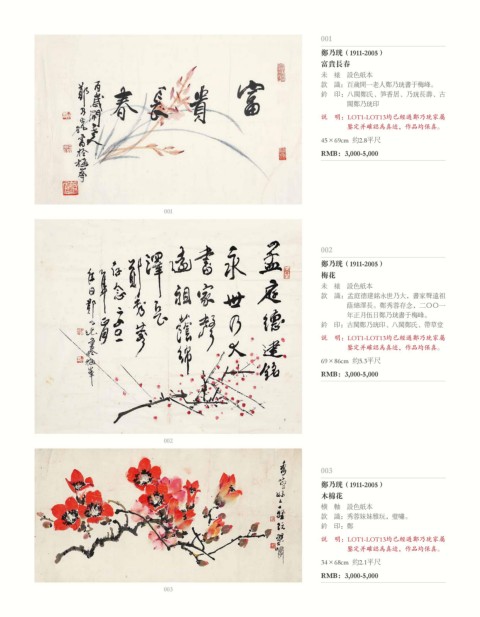 富貴長春
百歲開一老人
鄭乃珖書於梅峰
001
孟庭德建銘
永世乃大
書家聲
遠祖蔭綿
澤長
鄭秀蓉
存念二〇〇一
年正月
伍日鄭乃珖書於梅峰
002
003
001
鄭乃珖（1911-2005）
富貴長春
未裱 設色紙本
款 識：百歲開一老人鄭乃珖書于梅峰。
鈐 印：八閩鄭氏、筍香居、乃珖長壽、古
閩鄭乃珖印
說 明：LOT1-LOT13均已經過鄭乃珖家屬
鑒定并確認為真迹，作品均保真。
45×69cm 約2.8平尺
RMB：3,000-5,000
002
鄭乃珖（1911-2005）
梅花
未裱 設色紙本
款 識：孟庭德建銘永世乃大，書家聲遠祖
蔭綿澤長。鄭秀蓉存念，二〇〇一
年正月伍日鄭乃珖書于梅峰。
鈐 印：古閩鄭乃珖印、八閩鄭氏、帶草堂
說 明：LOT1-LOT13均已經過鄭乃珖家屬
鑒定并確認為真迹，作品均保真。
69×86cm 約5.3平尺
RMB：3,000-5,000
003
鄭乃珖（1911-2005）
木棉花
橫軸 設色紙本
款 識：秀蓉妹妹雅玩。璧嘯。
鈐 印：鄭
說 明：LOT1-LOT13均已經過鄭乃珖家屬
鑒定并確認為真迹，作品均保真。
34×68cm 約2.1平尺
RMB：3,000-5,000